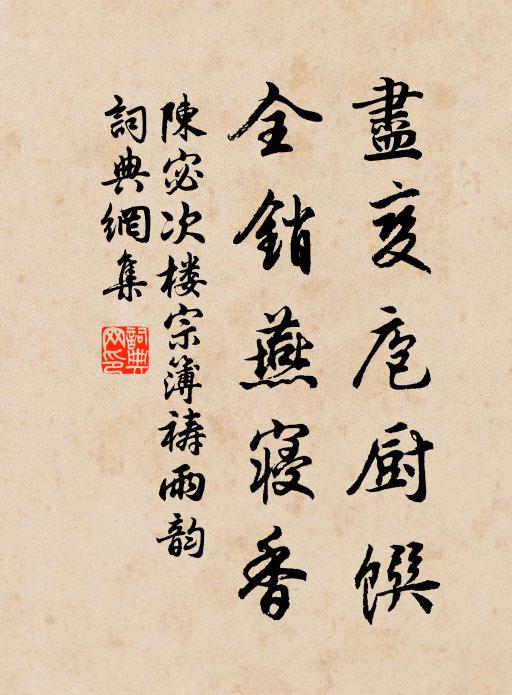 盡變庖厨饌
全銷燕寝香
陳宓次楼宗簿禱雨韵
詞典網集
詞典网印